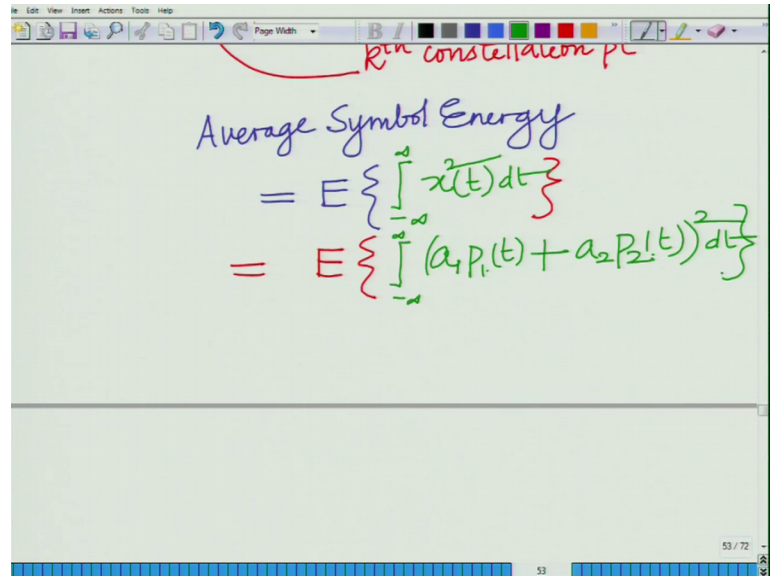 File Edit View Insert Actions Tools Help
Page Width
B I
kth constellation pt
Average Symbol Energy
= E { ∫_{-∞}^{∞} x²(t) dt }
= E { ∫_{-∞}^{∞} (a₁p₁(t) + a₂p₂(t))² dt }
53 / 72
53